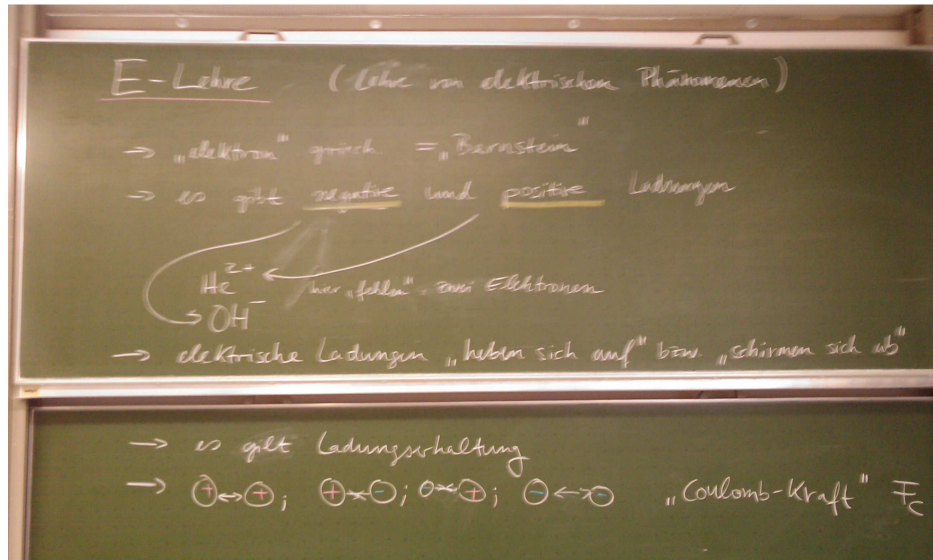 E-Lehre (Lehre von elektrischen Phänomenen)
→ „elektron" griech = „Bernstein"
→ es gibt negative und positive Ladungen
He²⁺ hier „fehlen" zwei Elektronen
OH⁻
→ elektrische Ladungen „heben sich auf" bzw. „schirmen sich ab"
→ es gilt Ladungserhaltung
→ ⊕↔⊕; ⊕→←⊖; ⊖→←⊕; ⊖↔⊖ „Coulomb-Kraft" F_C